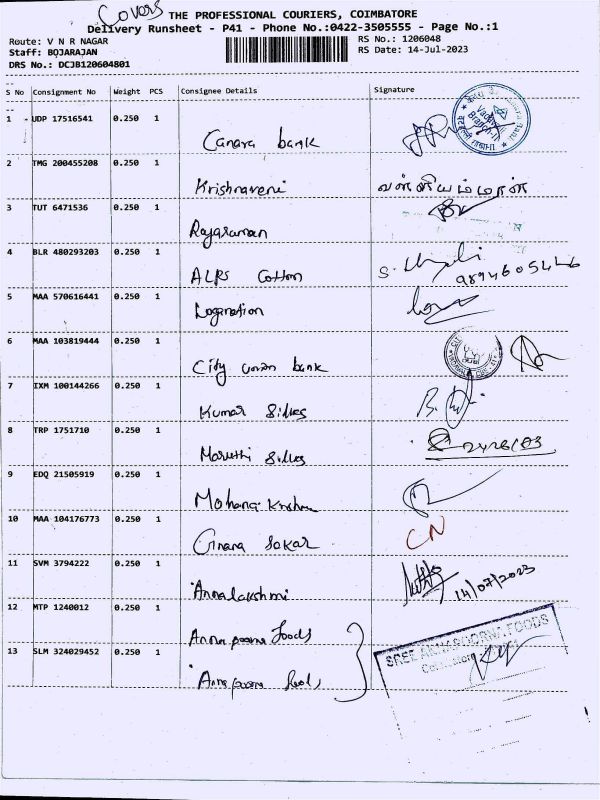 Covers
THE PROFESSIONAL COURIERS, COIMBATORE
Delivery Runsheet - P41 - Phone No.:0422-3505555 - Page No.:1
Route: V N R NAGAR
RS No.: 1206048
Staff: BOJARAJAN
RS Date: 14-Jul-2023
DRS No.: DCJB120604801
S No Consignment No Weight PCS Consignee Details Signature
1 UDP 17516541 0.250 1 Canara bank
2 TMG 200455208 0.250 1 Krishnaveni
3 TUT 6471536 0.250 1 Rajaraman
4 BLR 480293203 0.250 1 ALPS Cotton 9894605446
5 MAA 570616441 0.250 1 Loganation
6 MAA 103819444 0.250 1 City union bank
7 IXM 100144266 0.250 1 Kumar Silks
8 TRP 1751710 0.250 1 Maruthi Silks
9 EDQ 21505919 0.250 1 Mohana Krishna
10 MAA 104176773 0.250 1 Gnana Sekar CN
11 SVM 3794222 0.250 1 Annalakshmi 14/07/2023
12 MTP 1240012 0.250 1 Annapoorna Foods
13 SLM 324029452 0.250 1 Annapoorna foods
SREE ANNAPOORNA FOODS